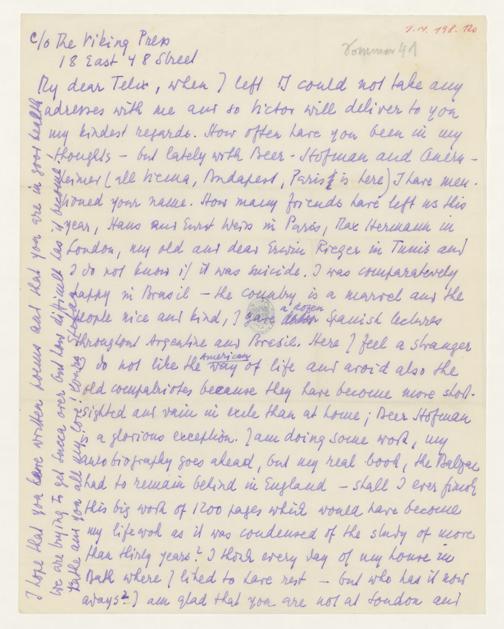 c/o The Viking Press
18 East 48 Street
Sommer 41
My dear Felix, when I left I could not take any
adresses with me and so Victor will deliver to you
my kindest regards. How often have you been in my
thoughts – but lately with Beer-Hofman and Auern-
heimer (all Vienna, Budapest, Paris is here) I have men-
tioned your name. How many friends have left us this
year, Hans and Ernst Weiss in Paris, Max Hermann in
London, my old and dear Erwin Rieger in Tunis and
I do not know if it was suicide. I was comparatively
happy in Brasil – the country is a marvel and the
people nice and kind, I gave a dozen Spanish lectures
throughout Argentine and Brasil. Here I feel a stranger
I do not like the American way of life and avoid also the
old compatriotes because they have become more short-
sighted and vain in exile than at home; Beer Hofman
a glorious exception. I am doing some work, my
autobiography goes ahead, but my real book, the Balzac
had to remain behind in England – shall I ever finish
this big work of 1200 pages which would have become
my lifework as it was condensed of the study of more
than thirty years? I think every day of my house in
Bath where I liked to have rest – but who has it now
aways? I am glad that you are not at London and
I hope that you have written poems and that you are in good health
We are trying to get Succer over but how difficult has it become!